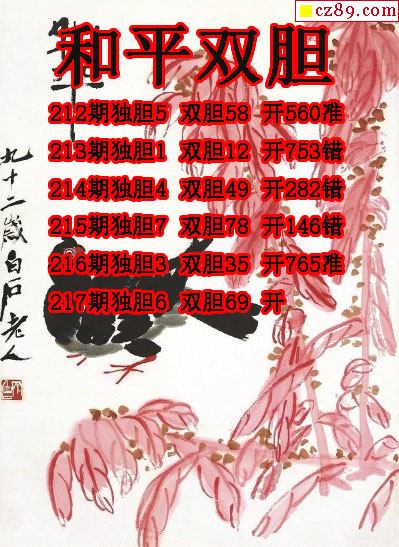 cz89.com
和平双胆
212期独胆5 双胆58 开560准
213期独胆1 双胆12 开753错
214期独胆4 双胆49 开282错
215期独胆7 双胆78 开146错
216期独胆3 双胆35 开765准
217期独胆6 双胆69 开
九十二岁白石老人